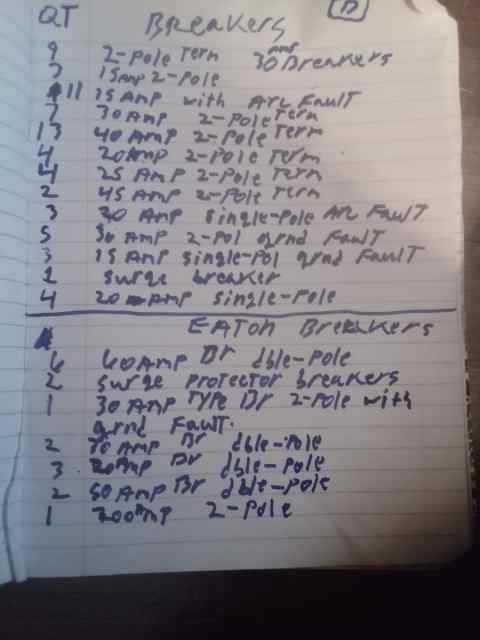 QT Breakers 12
9 2-Pole Term 30 Amp Breakers
7 15 Amp 2-Pole
11 15 Amp with Arc Fault
7 30 Amp 2-Pole Term
13 40 Amp 2-Pole Term
4 20 Amp 2-Pole Term
4 25 Amp 2-Pole Term
2 45 Amp 2-Pole Term
3 20 Amp Single-Pole Arc Fault
5 30 Amp 2-Pol grnd Fault
3 15 Amp Single-Pol grnd Fault
1 Surge breaker
4 20 Amp Single-Pole
EATON Breakers
6 60 Amp Br dble-Pole
2 Surge Protector breakers
1 30 Amp TYPE Br 2-Pole with
grnd Fault.
2 Amp Br dble-Pole
3 Amp Br dble-Pole
2 50 Amp Br dble-Pole
1 200 Amp 2-Pole